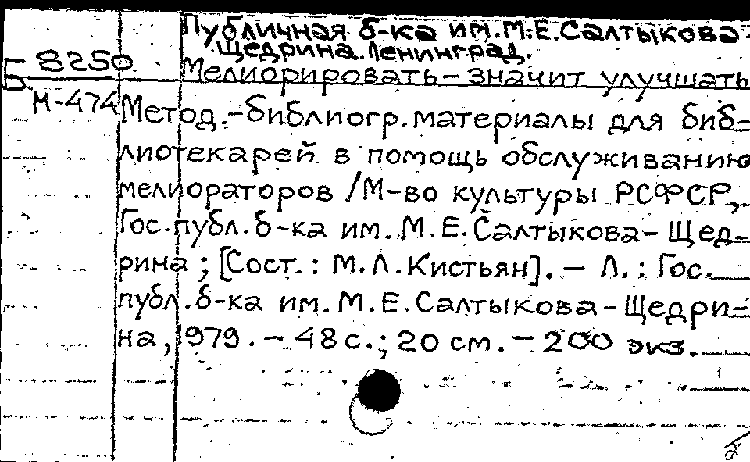 Публичная б-ка им. М.Е. Салтыкова-
Щедрина. Ленинград.
Б 8250
М-474
Мелиорировать - значит улучшать
Метод.-библиогр. материалы для биб-
лиотекарей в помощь обслуживанию
мелиораторов / М-во культуры РСФСР,
Гос. публ. б-ка им. М.Е. Салтыкова-Щед-
рина ; [Сост. : М.Л. Кистьян]. - Л. : Гос.
публ. б-ка им. М.Е. Салтыкова-Щедри-
на, 1979. - 48 с. ; 20 см. - 200 экз.